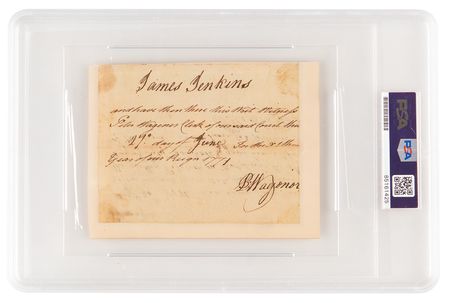 James Jenkins
and have then there this Writ Witness
Peter Wagener Clerk of our said Court the
29th day of June In the XIth
Year of our Reign 1771
P Wagener
PSA
PSA
85161425